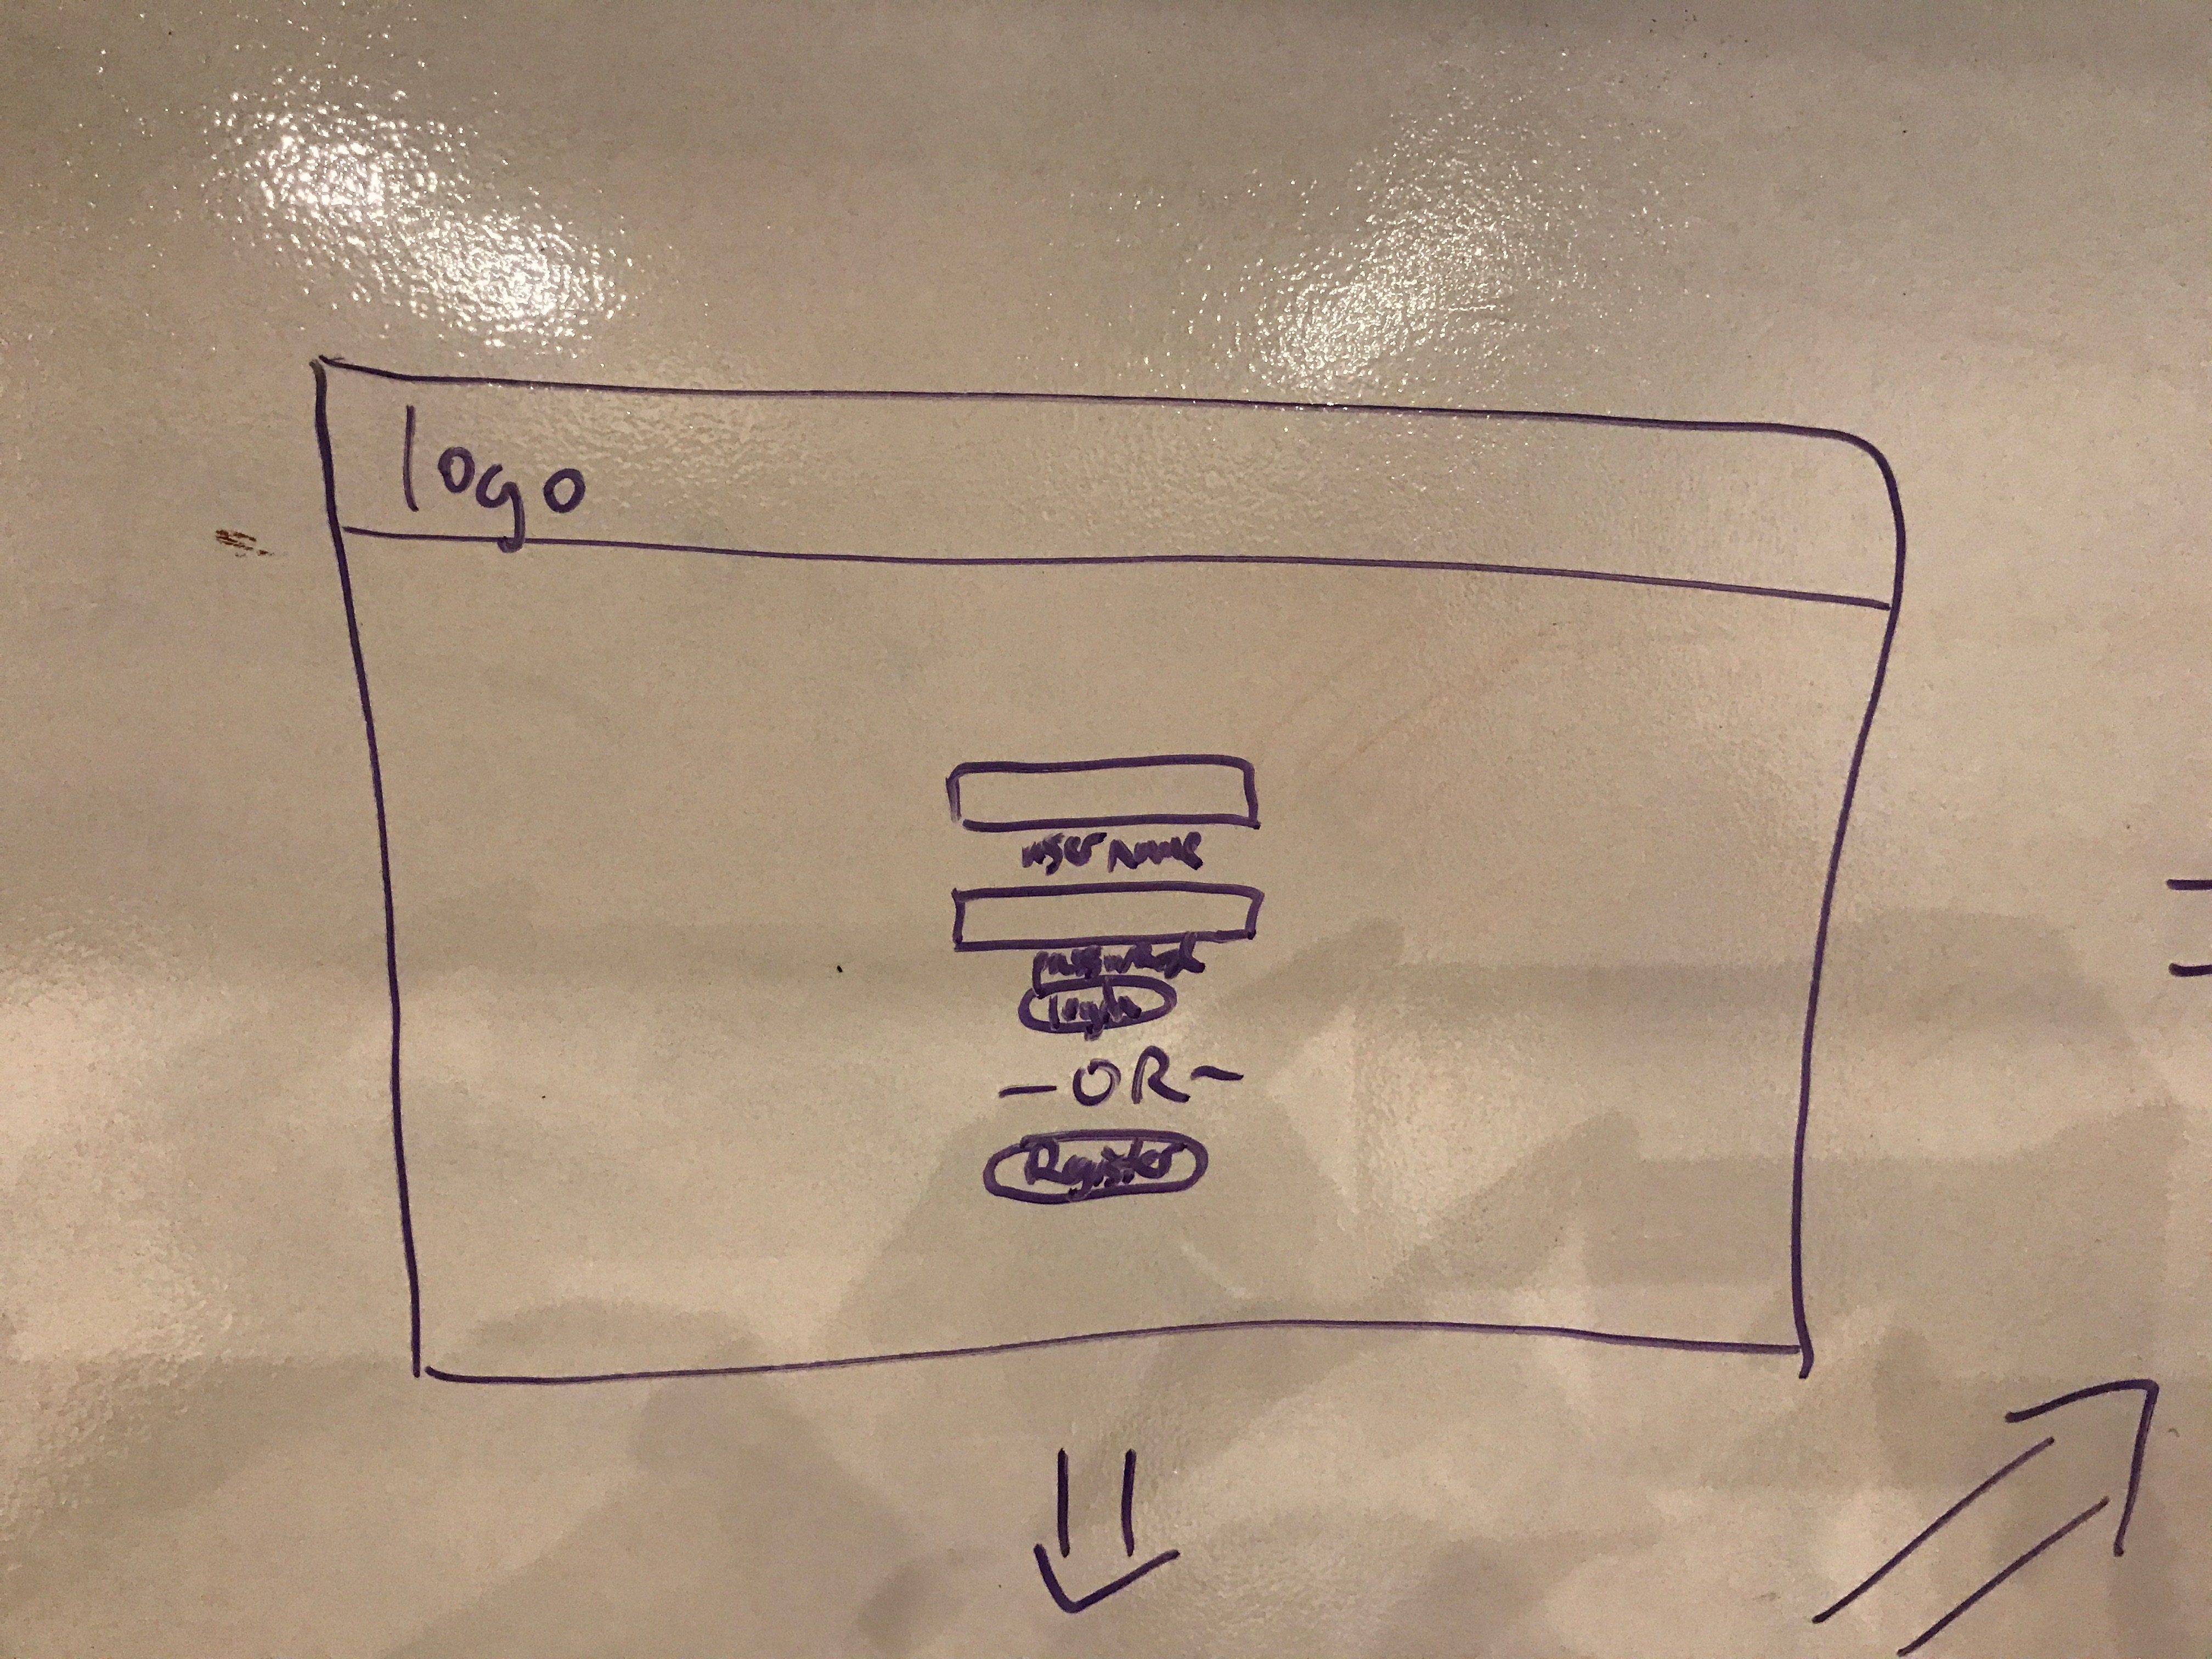 logo
user name
password
login
- OR -
Register